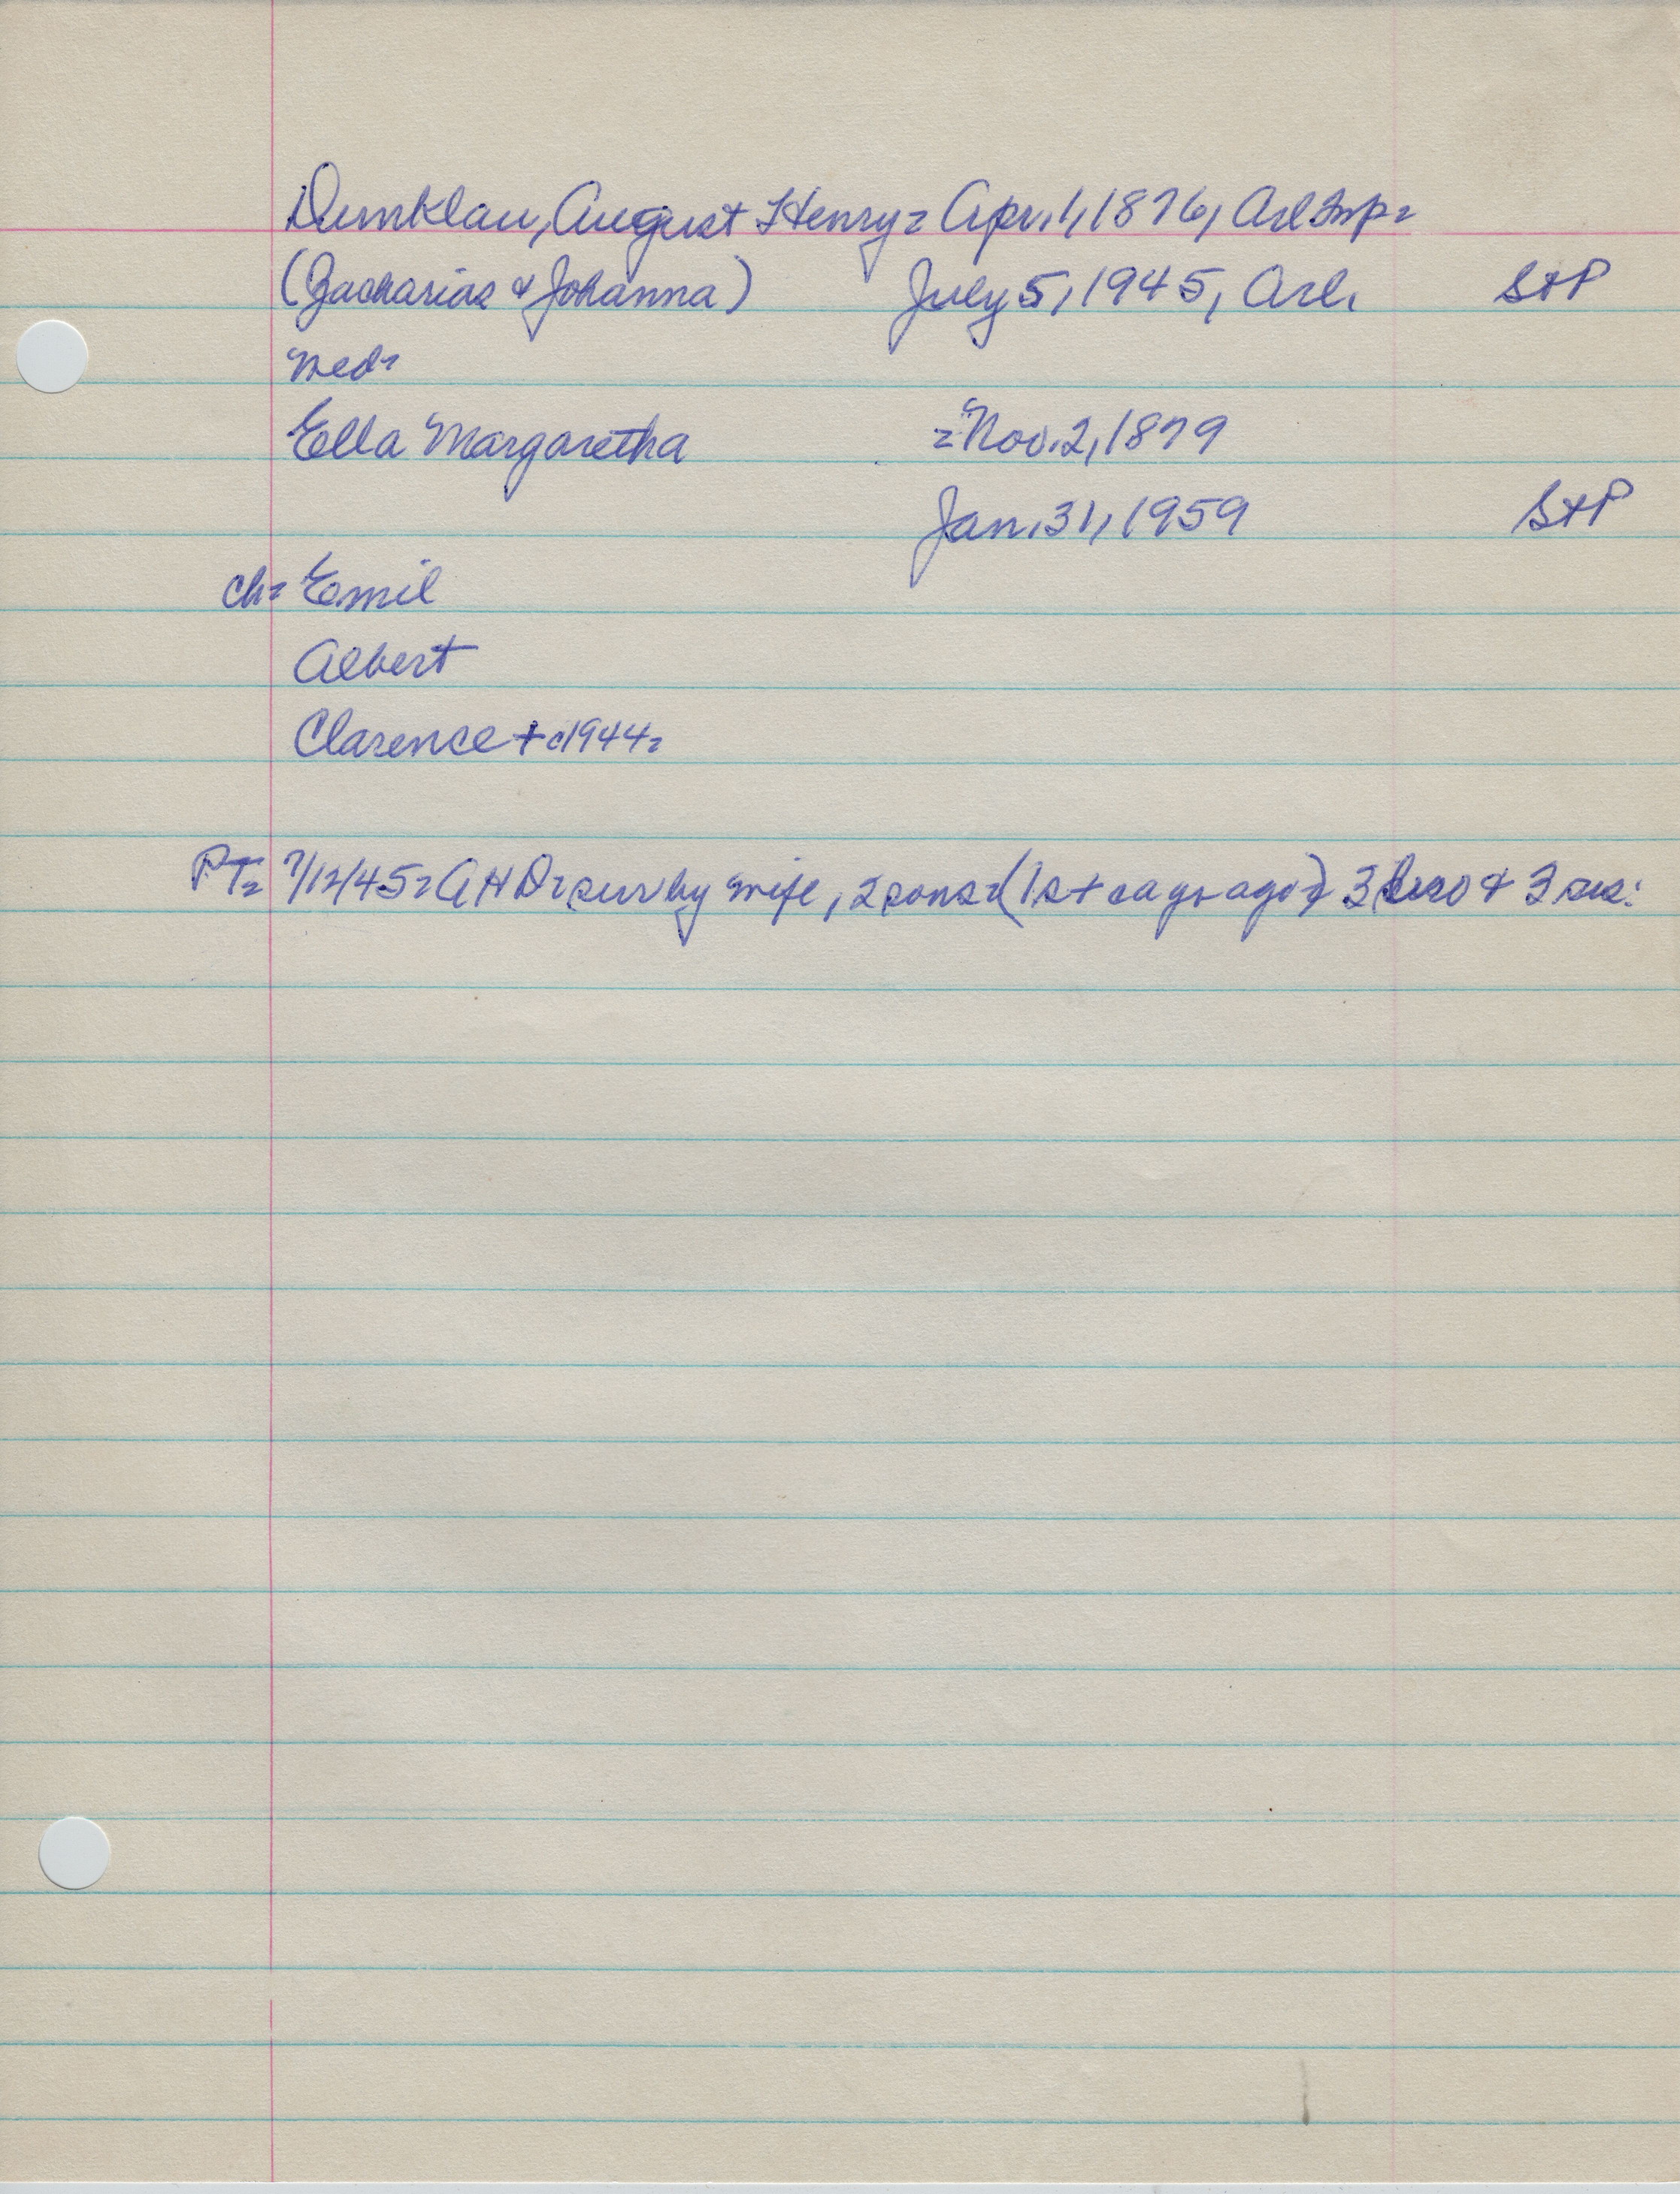 Dunklau, August Henry= Apr. 1, 1876, Arl twp=
(Zacharias & Johanna) July 5, 1945, Arl. StP
med=
Ella Margaretha =Nov. 2, 1879
Jan. 31, 1959 StP
ch= Emil
Albert
Clarence + c1944=
PT= 7/12/45= AHD= sur by wife, 2 sons= (1 st ca yr ago) 3 bro & 3 sis: